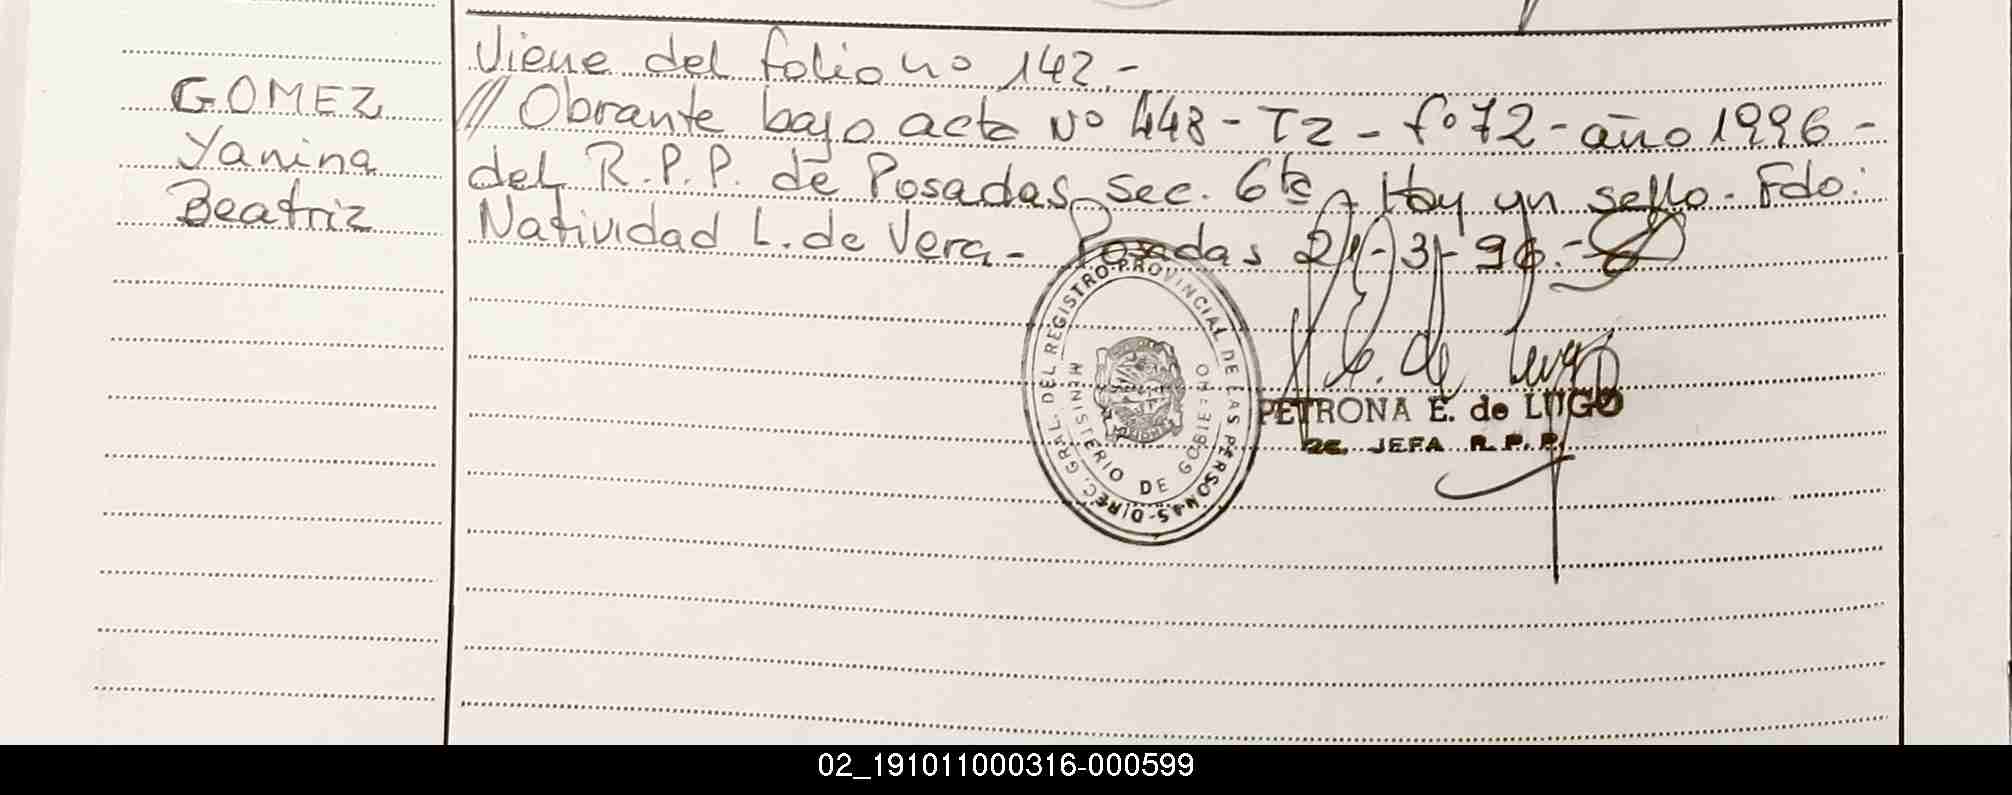 GOMEZ
Yanina
Beatriz
Viene del folio no 142.-
/// Obrante bajo acta No 448 - T2 - fo 72 - año 1996 -
del R.P.P. de Posadas sec. 6ta - Hay un sello. Fdo:
Natividad L. de Vera - Posadas 21-3-96.-
DIREC. GRAL. DEL REGISTRO PROVINCIAL DE LAS PERSONAS -
MINISTERIO DE GOBIERNO
PETRONA E. de LUGO
2a. JEFA R. P. P.
02_191011000316-000599